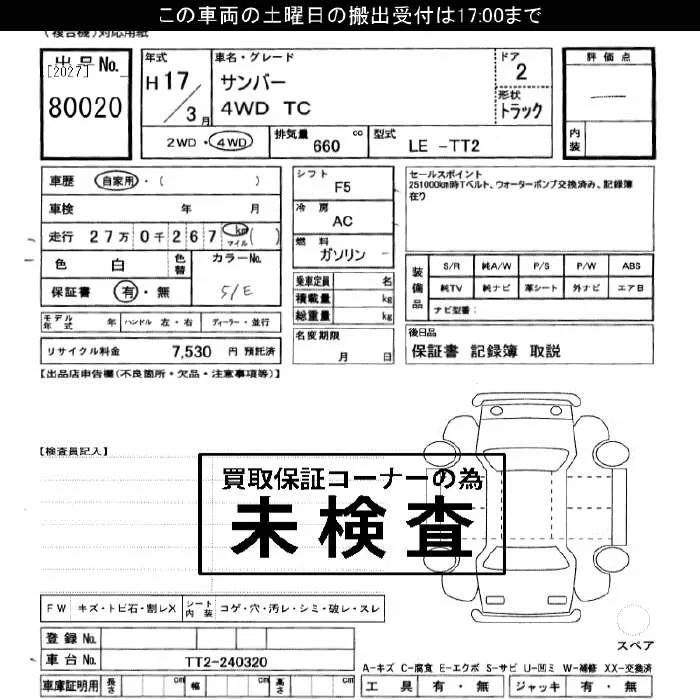 この車両の土曜日の搬出受付は17:00まで
(複合機)対応用紙
出品No.
[2027]
80020
年式
H 17
/ 3月
車名・グレード
サンバー
4WD TC
ドア
2
形状
トラック
評価点
内装
2WD・4WD
排気量 660 cc
型式 LE -TT2
車歴 自家用・( )
車検 年 月
走行 27万0千267 km マイル ( )
色 白 色替 カラーNo.
保証書 有・無 S/E
モデル年式 年 ハンドル 左・右 ディーラー・並行
リサイクル料金 7,530 円 預託済
シフト F5
冷房 AC
燃料 ガソリン
乗車定員 名
積載量 kg
総重量 kg
名変期限
月 日
セールスポイント
251000km時Tベルト、ウォーターポンプ交換済み、記録簿
在り
装備品
S/R 純A/W P/S P/W ABS
純TV 純ナビ 革シート 外ナビ エアB
ナビ型番:
後日品
保証書 記録簿 取説
【出品店申告欄(不良箇所・欠品・注意事項等)】
【検査員記入】
買取保証コーナーの為
未検査
FW キズ・トビ石・割レX シート内装 コゲ・穴・汚レ・シミ・破レ・スレ
登録No.
車台No. TT2-240320
車庫証明用 長さ cm 幅 cm 高さ cm
スペア
A-キズ C-腐食 E-エクボ S-サビ U-凹ミ W-補修 XX-交換済
工具 有・無 ジャッキ 有・無